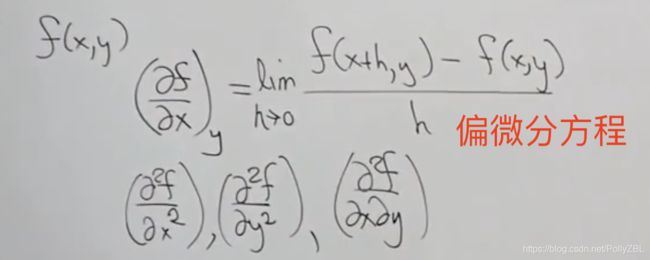 f(x,y)
(∂f/∂x)_y = lim_{h→0} (f(x+h,y) - f(x,y))/h
偏微分方程
(∂²f/∂x²), (∂²f/∂y²), (∂²f/∂x∂y)
https://blog.csdn.net/PollyZBL